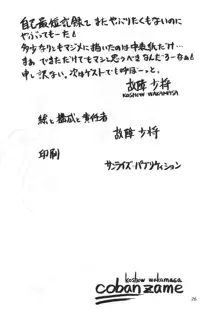 自己最短記録て またやぶりたくもないのに
やぶってもーた!
多少なりともマジメに描いたのは中表紙だけ…
まぁ できただけでもマシと思うべきなんだろーなぁ!
申し訳ない。次はゲストでも呼ぼーっと。
故障少将
KOSHOW WAKAMASA
絵と構成と責任者
故障少将
印刷
サンライズ・パブリケイション
koshow wakamasa
cobanzame
26